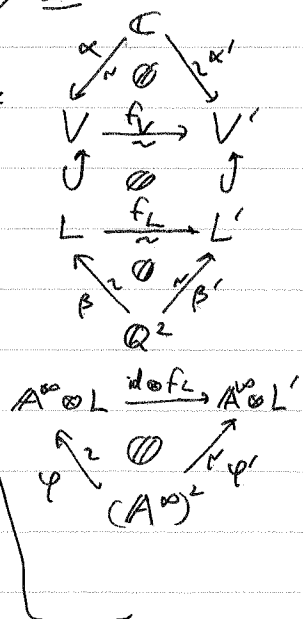 ℂ
α ~ ~ α'
V f_V ~ V'
L f_L ~ L'
β ~ ~ β'
ℚ²
𝔸^∞ ⊗ L id⊗f_L 𝔸^∞ ⊗ L'
φ ~ ~ φ'
(𝔸^∞)²